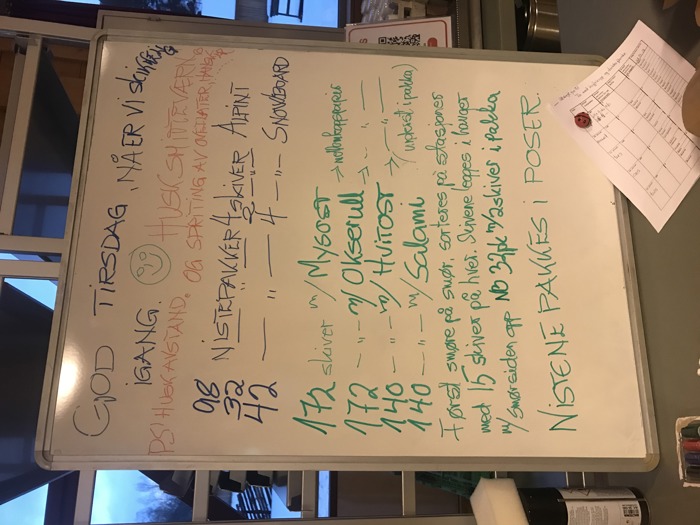 GOD TIRSDAG, NÅ ER VI SKIKKELIG
IGANG.
PS! HUSK AVSTAND. HUSK SKITTLEVÆRN
OG SPRITING AV OVERFLATER, HANSKER
98 NISTEPAKKER 4 SKIVER ALPINT
32 — " — 2 SKIVER — " —
42 — " — 4 — " — SNOWBOARD
172 skiver m/ Mysost → matpapir
172 — " — m/ Okserull → — " —
140 — " — m/ Hvitost → — " —
140 — " — m/ Salami (underst i pakka)
Først smøre på smør, sorteres på stasjoner
med 15 skiver på hver. Skivene legges i hauger
m/ smørsiden opp NB 32pk m/2 skiver i pakka
NISTENE PAKKES I POSER.